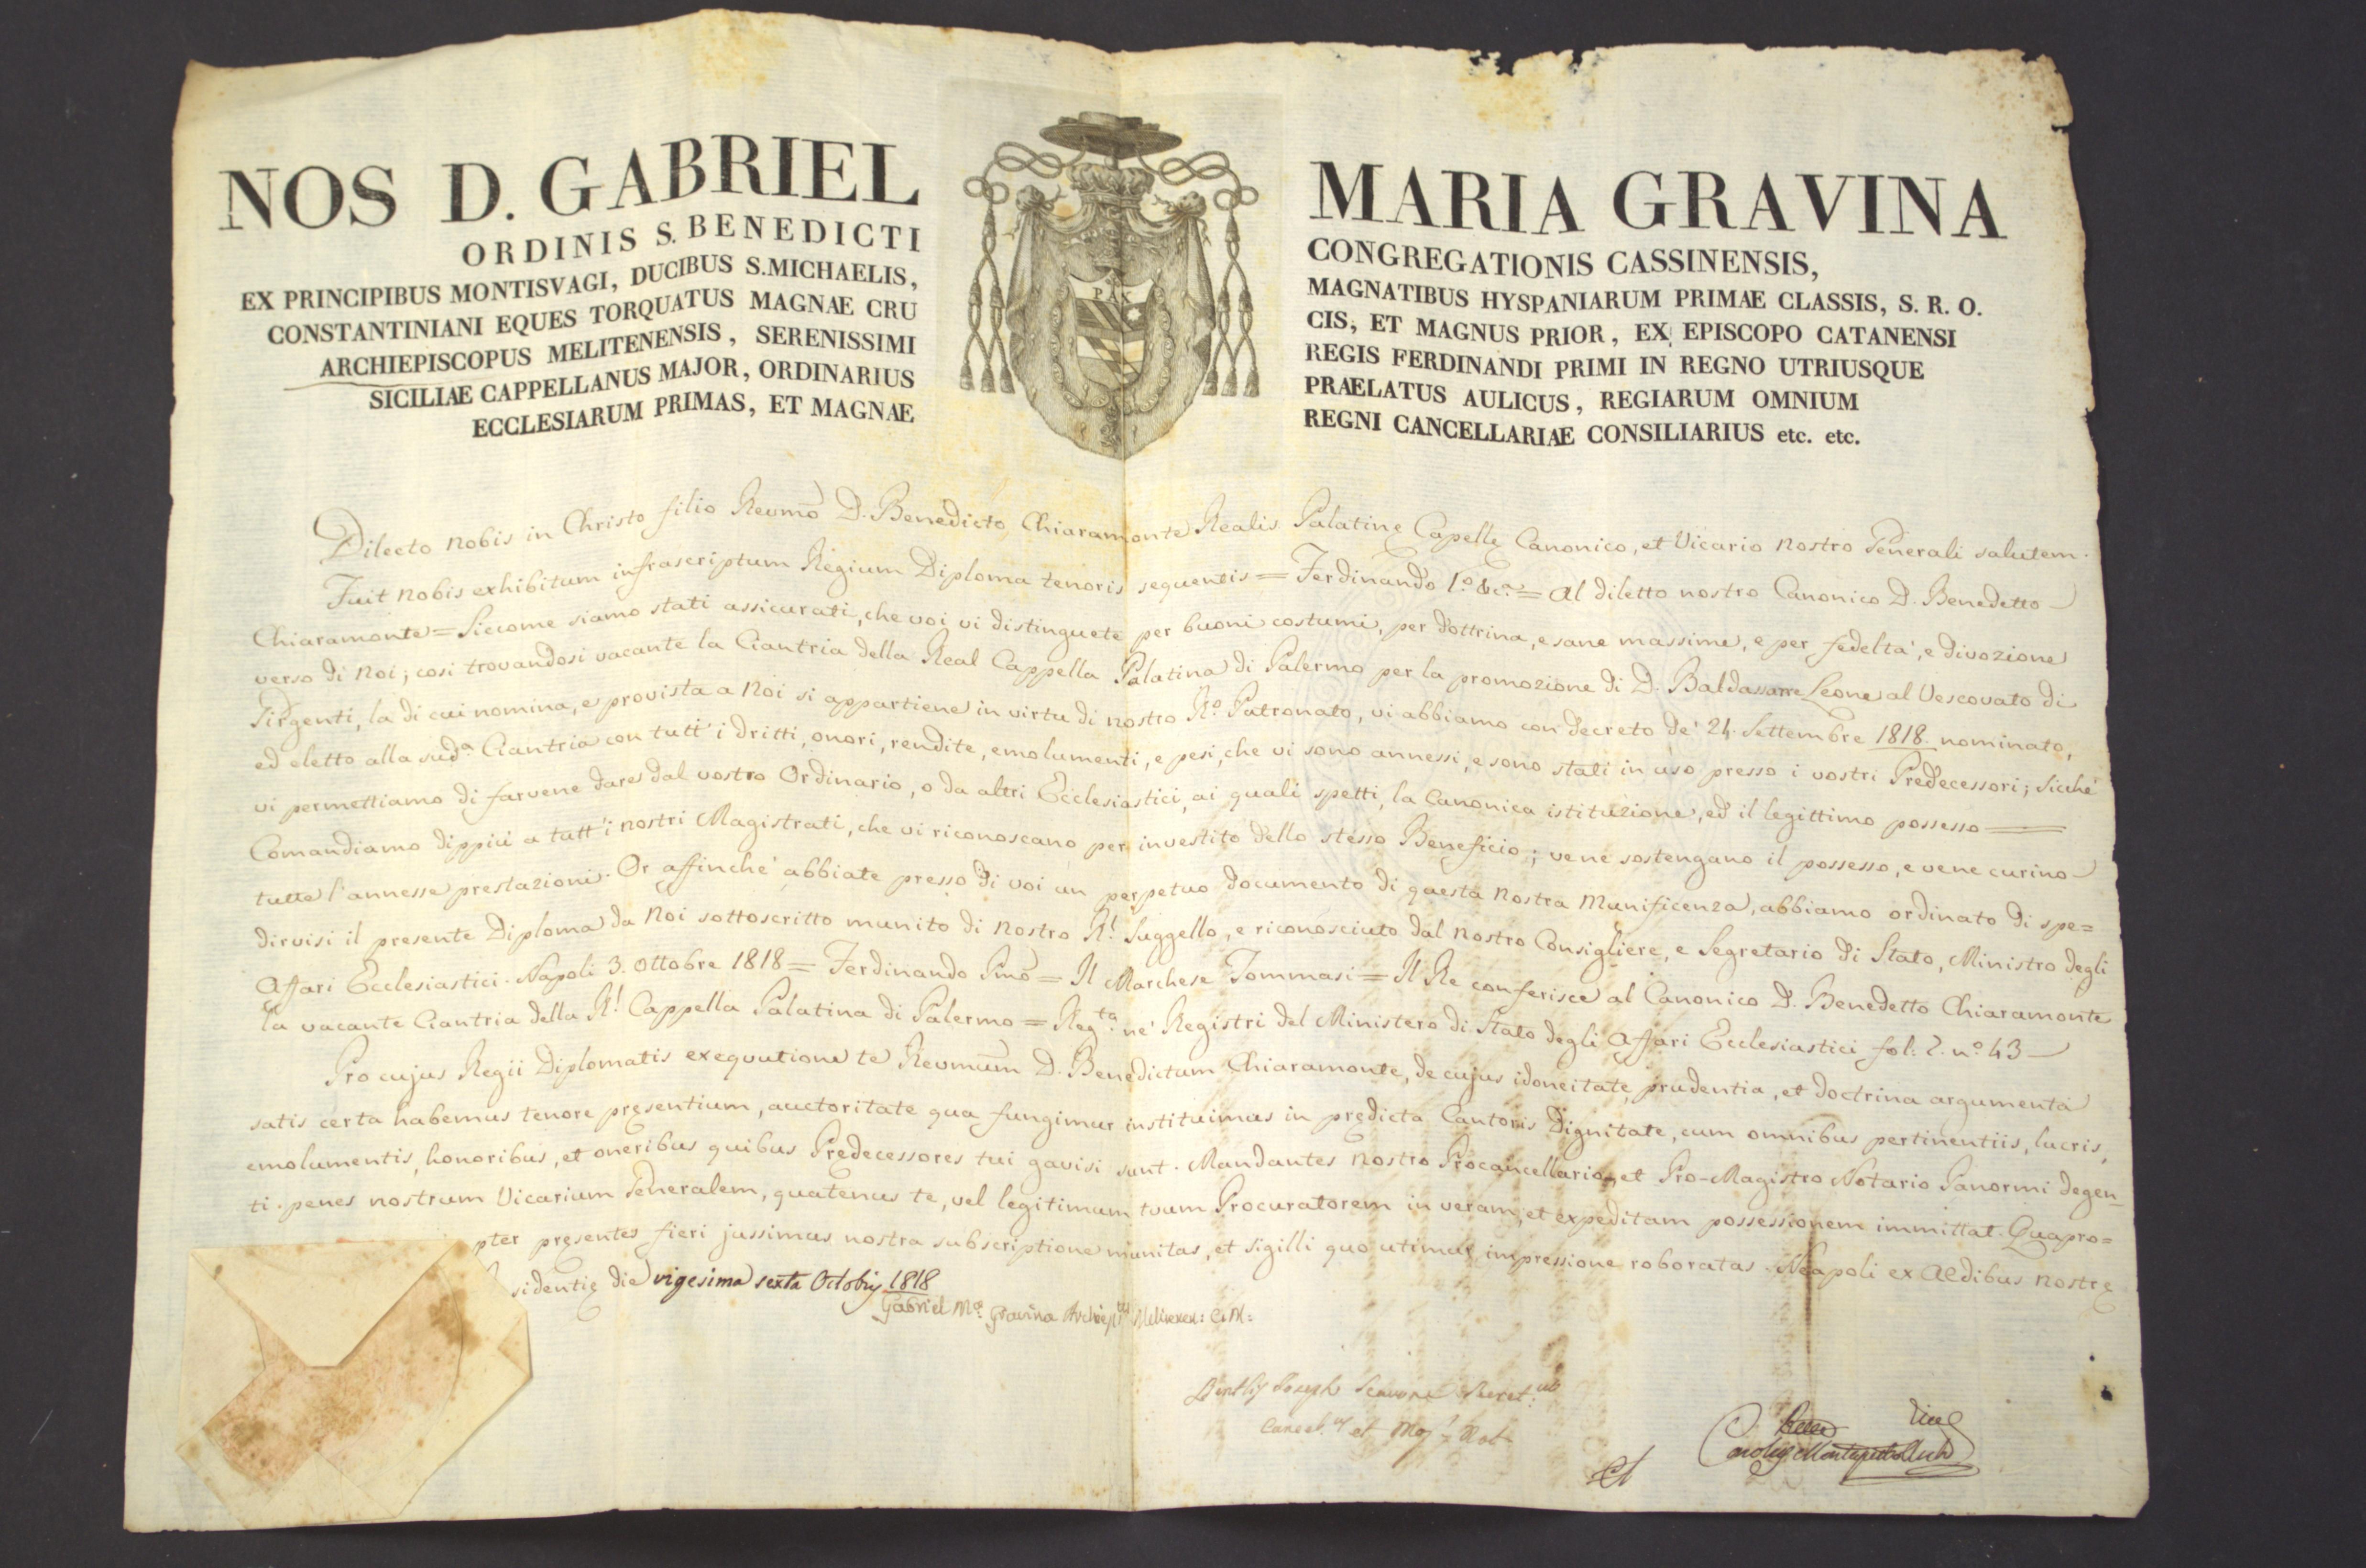 NOS D. GABRIEL MARIA GRAVINA
ORDINIS S. BENEDICTI CONGREGATIONIS CASSINENSIS,
EX PRINCIPIBUS MONTISVAGI, DUCIBUS S. MICHAELIS, MAGNATIBUS HYSPANIARUM PRIMAE CLASSIS, S. R. O.
CONSTANTINIANI EQUES TORQUATUS MAGNAE CRU CIS, ET MAGNUS PRIOR, EX EPISCOPO CATANENSI
ARCHIEPISCOPUS MELITENENSIS, SERENISSIMI REGIS FERDINANDI PRIMI IN REGNO UTRIUSQUE
SICILIAE CAPPELLANUS MAJOR, ORDINARIUS PRAELATUS AULICUS, REGIARUM OMNIUM
ECCLESIARUM PRIMAS, ET MAGNAE REGNI CANCELLARIAE CONSILIARIUS etc. etc.
PAX
Dilecto nobis in Christo filio Reumõ D. Benedicto Chiaramonte Realis Palatinę Capellę Canonico, et Vicario nostro Generali salutem.
Fuit nobis exhibitum infrascriptum Regium Diploma tenoris sequentis = Ferdinando 1.º &c.ª = Al diletto nostro Canonico D. Benedetto
Chiaramonte = Siccome siamo stati assicurati, che voi vi distinguete per buoni costumi, per dottrina, e sane massime, e per fedeltà, e divozione
verso di Noi; così trovandosi vacante la Ciantria della Real Cappella Palatina di Palermo per la promozione di D. Baldassarre Leone al Vescovato di
Girgenti, la di cui nomina, e provista a Noi si appartiene in virtù di nostro R.º Patronato, vi abbiamo con decreto de' 24. Settembre 1818. nominato,
ed eletto alla sud.ª Ciantria con tutt' i dritti, onori, rendite, emolumenti, e pesi, che vi sono annessi, e sono stati in uso presso i vostri Predecessori; Sicchè
vi permettiamo di farvene dare dal vostro Ordinario, o da altri Ecclesiastici, ai quali spetti, la Canonica istituzione, ed il legittimo possesso
Comandiamo dippiù a tutt' i nostri Magistrati, che vi riconoscano per investito dello stesso Beneficio; vene sostengano il possesso, e vene curino
tutte l'annesse prestazioni. Or affinchè abbiate presso di voi un perpetuo documento di questa nostra Munificenza, abbiamo ordinato di spe=
dirvisi il presente Diploma da Noi sottoscritto munito di nostro R.l Suggello, e riconosciuto dal nostro Consigliere, e Segretario di Stato, Ministro degli
Affari Ecclesiastici. Napoli 3. Ottobre 1818 = Ferdinando Pmõ = Il Marchese Tommasi = Il Re conferisce al Canonico D. Benedetto Chiaramonte
la vacante Ciantria della R.l Cappella Palatina di Palermo = Reg.ta ne' Registri del Ministero di Stato degli Affari Ecclesiastici fol: 2. nº 43
Pro cujus Regii Diplomatis exequutione te Reumũm D. Benedictum Chiaramonte, de cujus idoneitate, prudentia, et doctrina argumenta
satis certa habemus tenore pręsentium, auctoritate qua fungimur instituimus in prędicta Cantoris Dignitate, cum omnibus pertinentiis, lucris,
emolumentis, honoribus, et oneribus quibus Prędecessores tui gavisi sunt. Mandantes nostro Procancellario, et Pro-Magistro Notario Panormi degen=
ti penes nostrum Vicarium Generalem, quatenus te, vel legitimum tuum Procuratorem in veram, et expeditam possessionem immittat. Quapro=
pter pręsentes fieri jussimus nostra subscriptione munitas, et sigilli quo utimur impressione roboratas. Neapoli ex Ædibus nostrę
sidentię die vigesima sexta Octobris 1818
Gabriel M.ª Gravina Archiep.us Meliten: C.M:
Joseph Secret.us
Cancel.us et Mag.r Not.